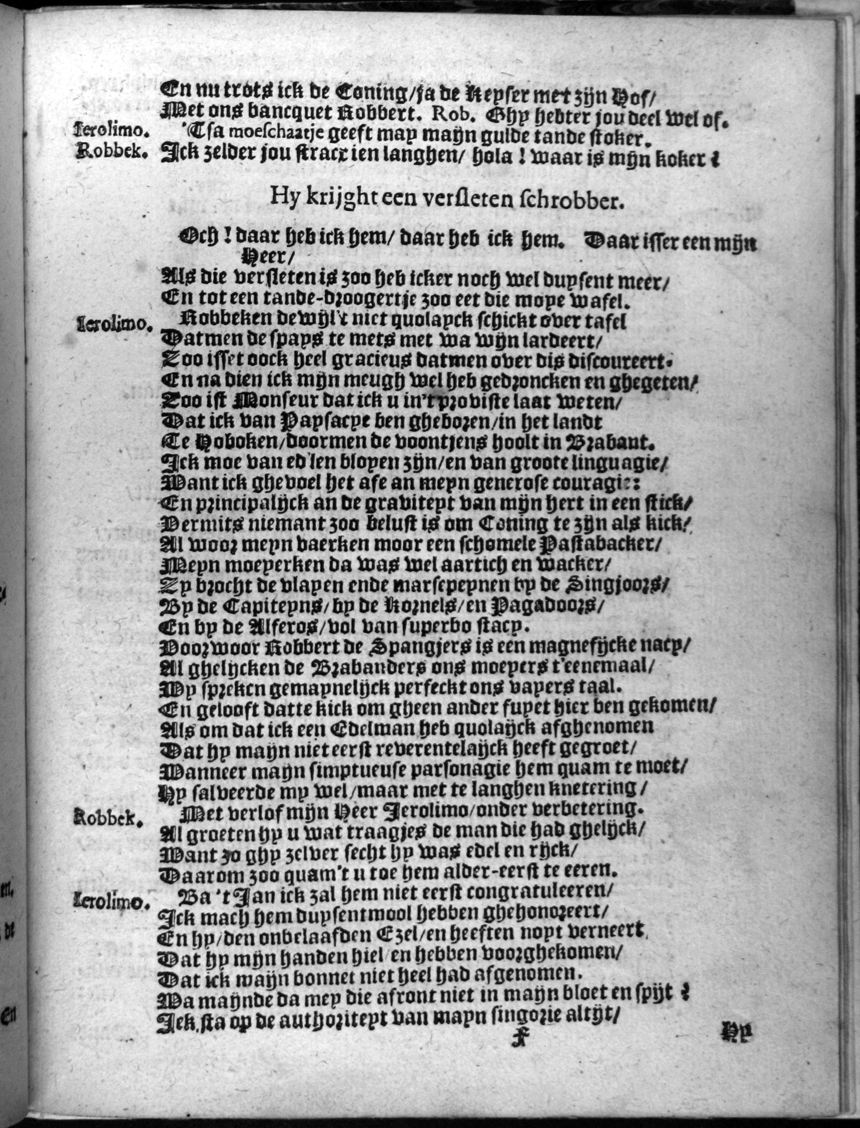 En nu trots ick de Coning/ja de Keyser met zijn Hof/
Met ons bancquet Robbert. Rob. Ghy hebter jou deel wel of.
Ierolimo. 'Tsa moeschaatje geeft may mayn gulde tande stoker.
Robbek. Ick zelder jou stracx ien langhen/ hola ! waar is mijn koker ?
Hy krijght een versleten schrobber.
Och ! daar heb ick hem/ daar heb ick hem. Daar isser een mijn
Heer/
Als die versleten is zoo heb icker noch wel duysent meer/
En tot een tande-droogertje zoo eet die moye wafel.
Ierolimo. Robbeken dewijl't niet quolayck schickt over tafel
Datmen de spays te mets met wa wijn lardeert/
Zoo isset oock heel gracieus datmen over dis discoureert.
En na dien ick mijn meugh wel heb gedroncken en ghegeten/
Zoo ist Monseur dat ick u in't proviste laat weten/
Dat ick van Paysacye ben gheboren/in het landt
Te Hoboken/doormen de voontjens hoolt in Brabant.
Ick moe van ed'len bloyen zijn/en van groote linguagie/
Want ick ghevoel het ase an meyn generose couragie:
En principalijck an de graviteyt van mijn hert in een stick/
Vermits niemant zoo belust is om Coning te zijn als kick/
Al woor meyn vaerken moor een schomele Pastabacker/
Meyn moeyerken da was wel aartich en wacker/
Zy brocht de vlayen ende marsepeynen by de Singjoors/
By de Capiteyns/by de Kornels/en Pagadoors/
En by de Alferos/vol van superbo stacy.
Voorwoor Robbert de Spangjers is een magnefijcke nacy/
Al ghelijcken de Brabanders ons moeyers t'eenemaal/
Wy spreken gemaynelijck perfeckt ons vayers taal.
En gelooft datte kick om gheen ander fuyet hier ben gekomen/
Als om dat ick een Edelman heb quolaijck afghenomen
Dat hy maijn niet eerst reverentelaijck heeft gegroet/
Wanneer maijn simptueuse parsonagie hem quam te moet/
Hy salveerde my wel/maar met te langhen knetering/
Robbek. Met verlof mijn Heer Jerolimo/onder verbetering.
Al groeten hy u wat traagjes de man die had ghelijck/
Want zo ghy zelver secht hy was edel en rijck/
Daarom zoo quam't u toe hem alder-eerst te eeren.
Ierolimo. Ba 't Jan ick zal hem niet eerst congratuleeren/
Ick mach hem duysentmool hebben ghehonoreert/
En hy/den onbelaafden Ezel/en heeften noyt verneert
Dat hy mijn handen hiel en hebben voorghekomen/
Dat ick waijn bonnet niet heel had afgenomen.
Wa maijnde da mey die afront niet in maijn bloet en spijt ?
Ick sta op de authoriteyt van mayn singorie altijt/
f Hy